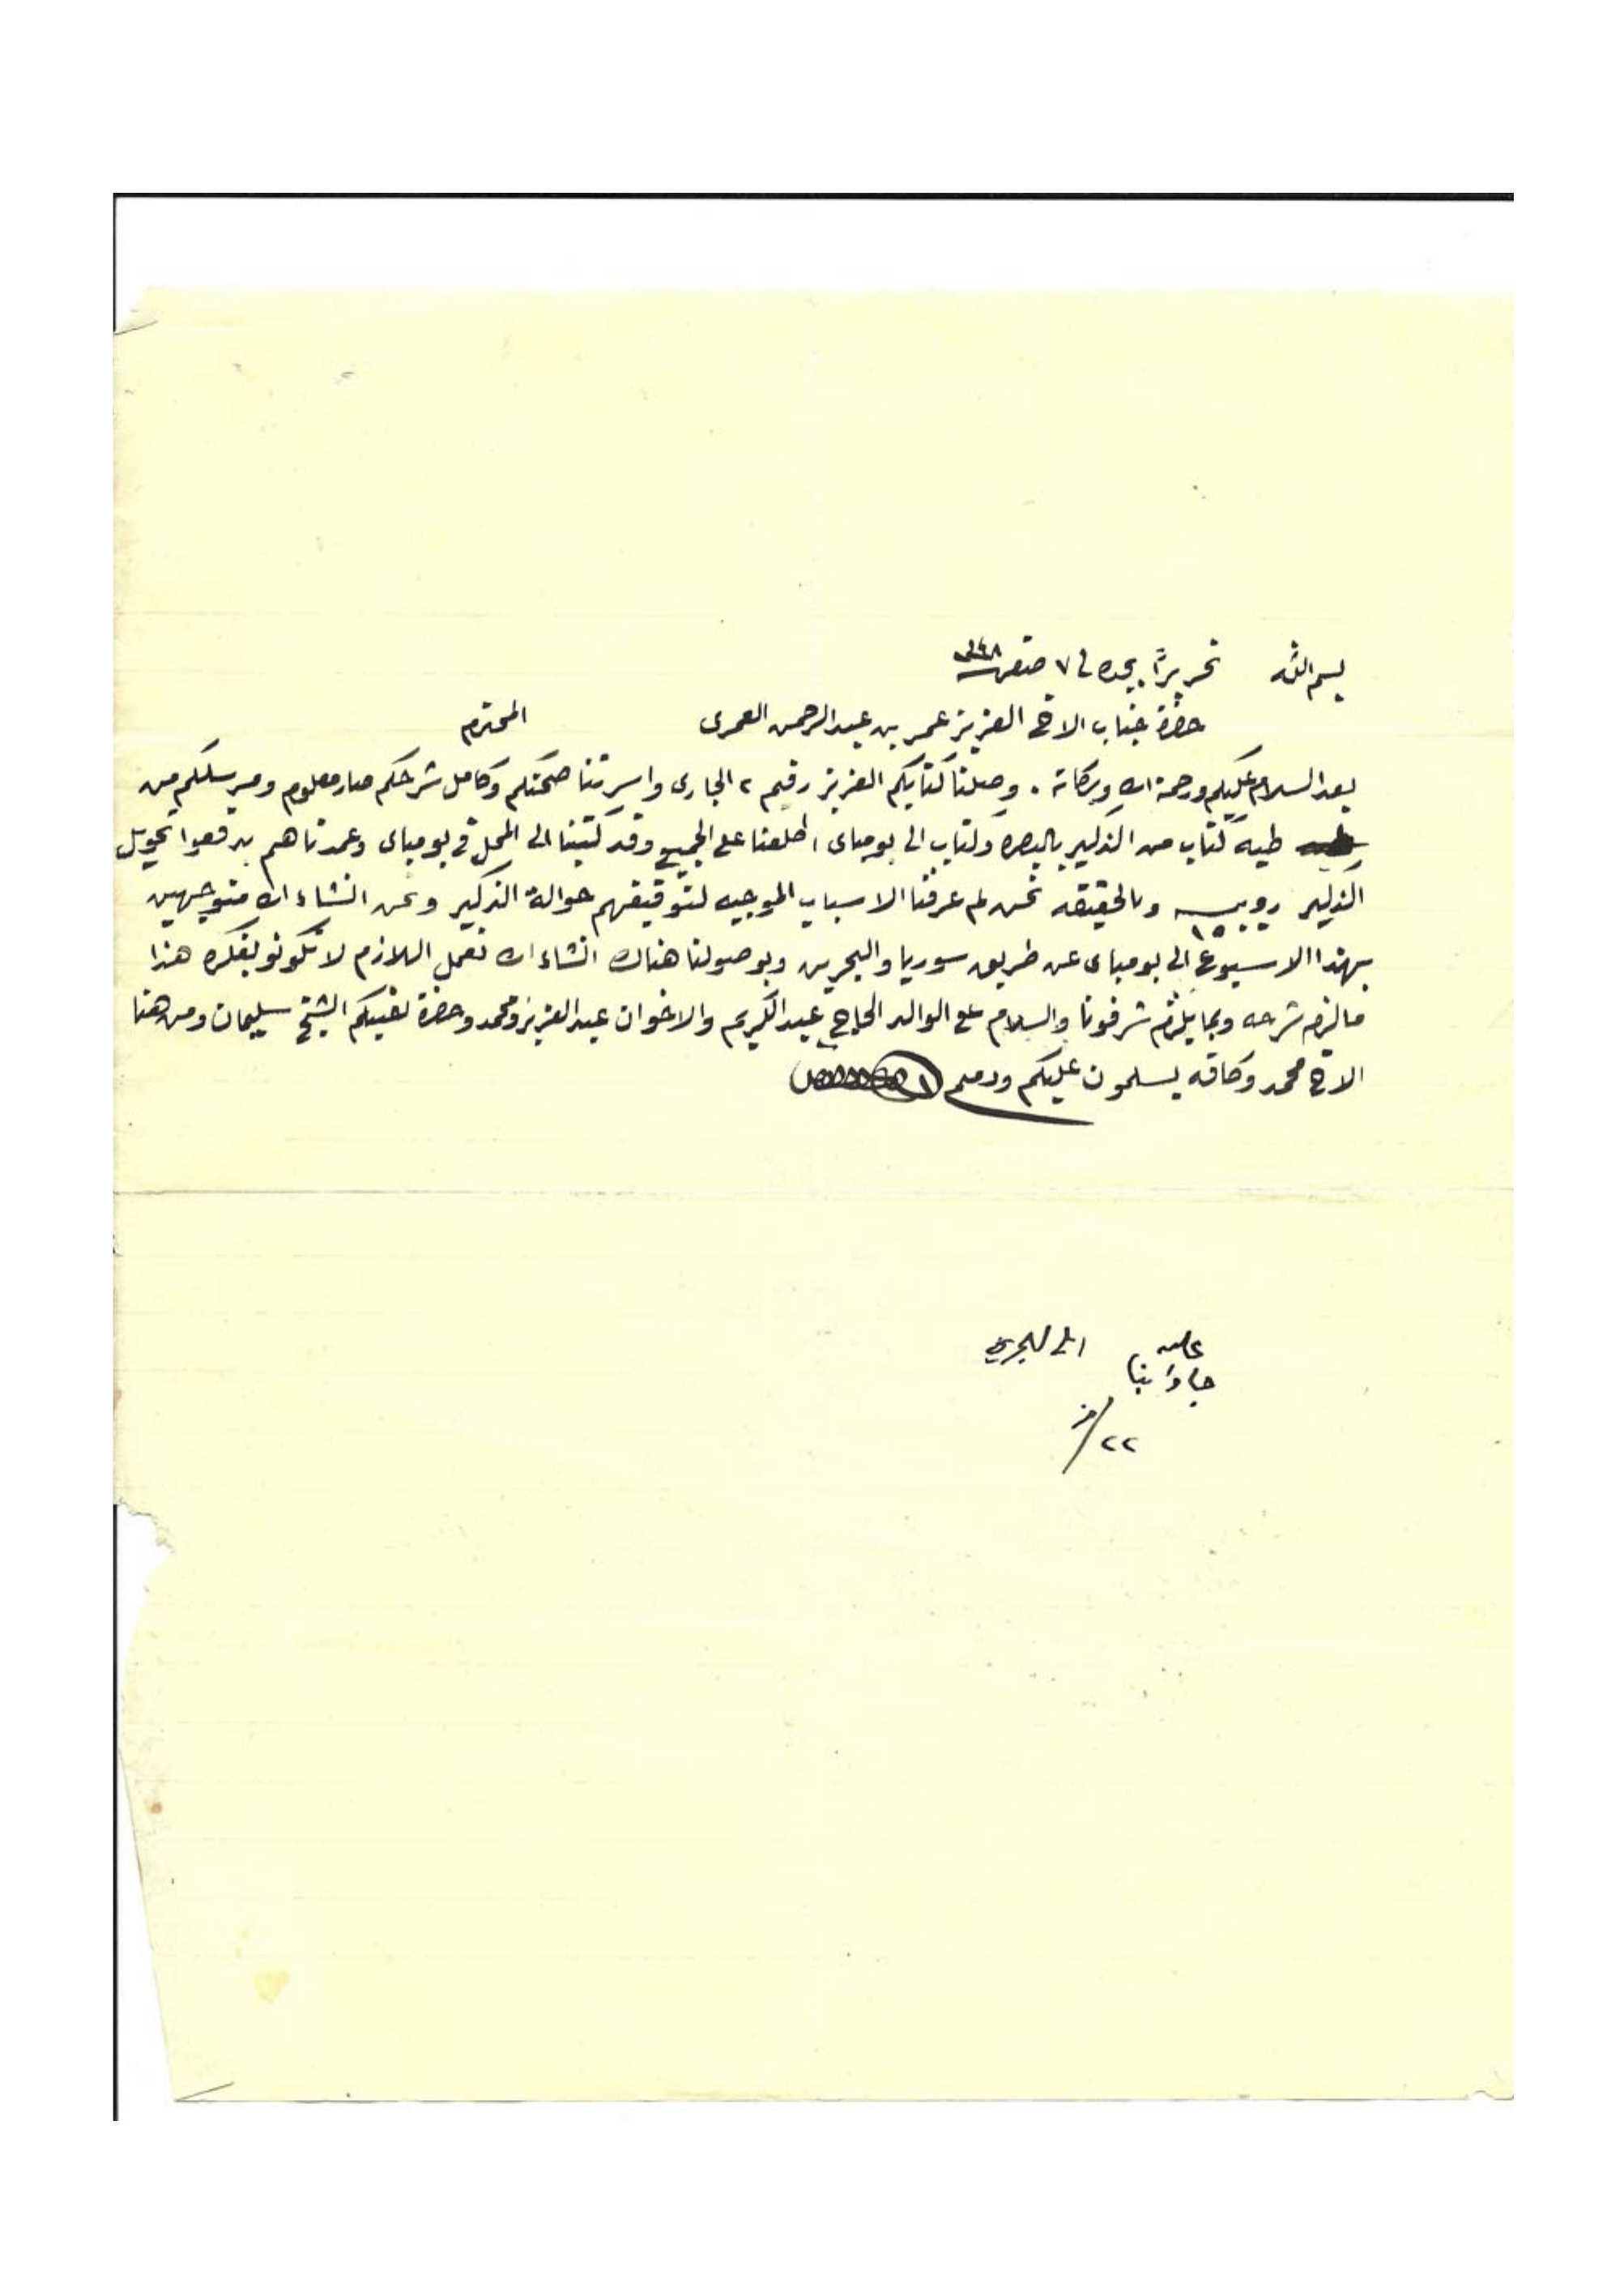 بسم الله تحريراً بجده في ٧ صفر ١٣٤٨
حضرة جناب الاخ العزيز عمر بن عبدالرحمن العمرى المحترم
بعد السلام عليكم ورحمة الله وبركاته . وصلنا كتابكم العزيز رقيم ٢ الجارى واسرتنا صحتكم وكامل شرحكم صار معلوم ومرسلكم من
طيه كتاب من الذكير بالبصره وكتاب الى بومباى اطلعنا على الجميع وقد كتبنا الى المحل في بومباى وعمدناهم يدفعوا تحويل
الذكير روبيه ١٥٠٠ وبالحقيقه نحن لم عرفنا الاسباب الموجبه لتوقيفهم حوالة الذكير ونحن انشاء الله متوجهين
بهذا الاسبوع الى بومباى عن طريق سوريا والبحرين وبوصولنا هناك انشاء الله نعمل اللازم لا تكونو بفكره هذا
مالزم شرحه وبما يلزم شرفونا والسلام على الوالد الحاج عبدالكريم والاخوان عبدالعزيز ومحمد وحضرة نقيبكم الشيخ سليمان ومن هنا
الاخ محمد وكافه يسلمون عليكم ودمتم
الى البحرين
٢٢